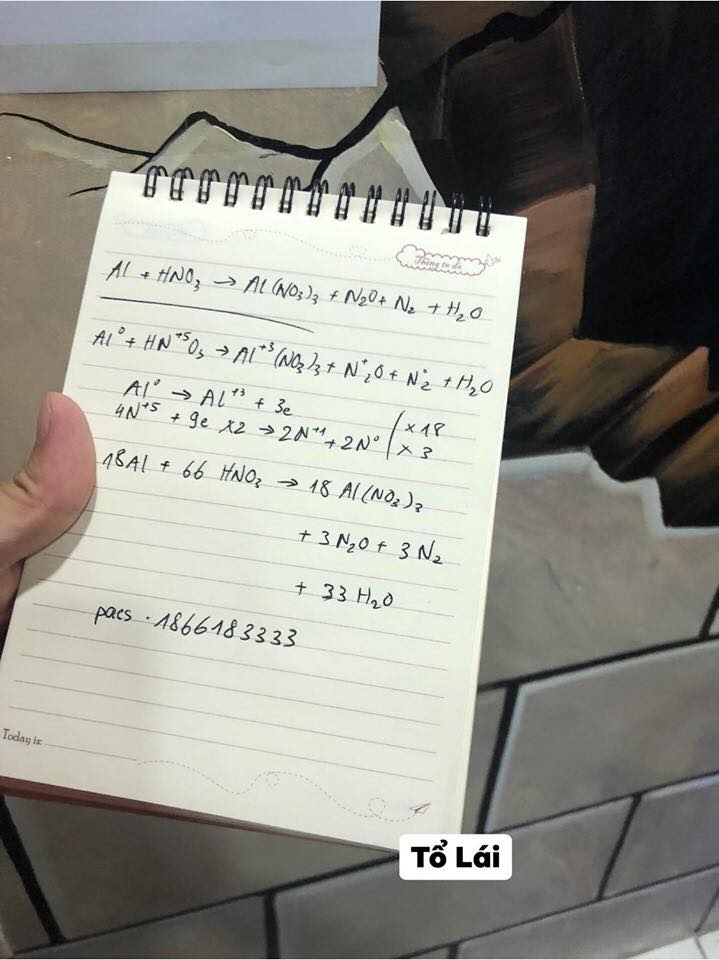 Thing to do
Al + HNO₃ → Al(NO₃)₃ + N₂O + N₂ + H₂O
Al⁰ + HN⁺⁵O₃ → Al⁺³(NO₃)₃ + N⁺₂O + N⁰₂ + H₂O
Al⁰ → Al⁺³ + 3e | x 18
4N⁺⁵ + 9e x2 → 2N⁺¹ + 2N⁰ | x 3
18Al + 66 HNO₃ → 18 Al(NO₃)₃
+ 3N₂O + 3 N₂
+ 33 H₂O
pacs . 1866183333
Today is:
Tổ Lái